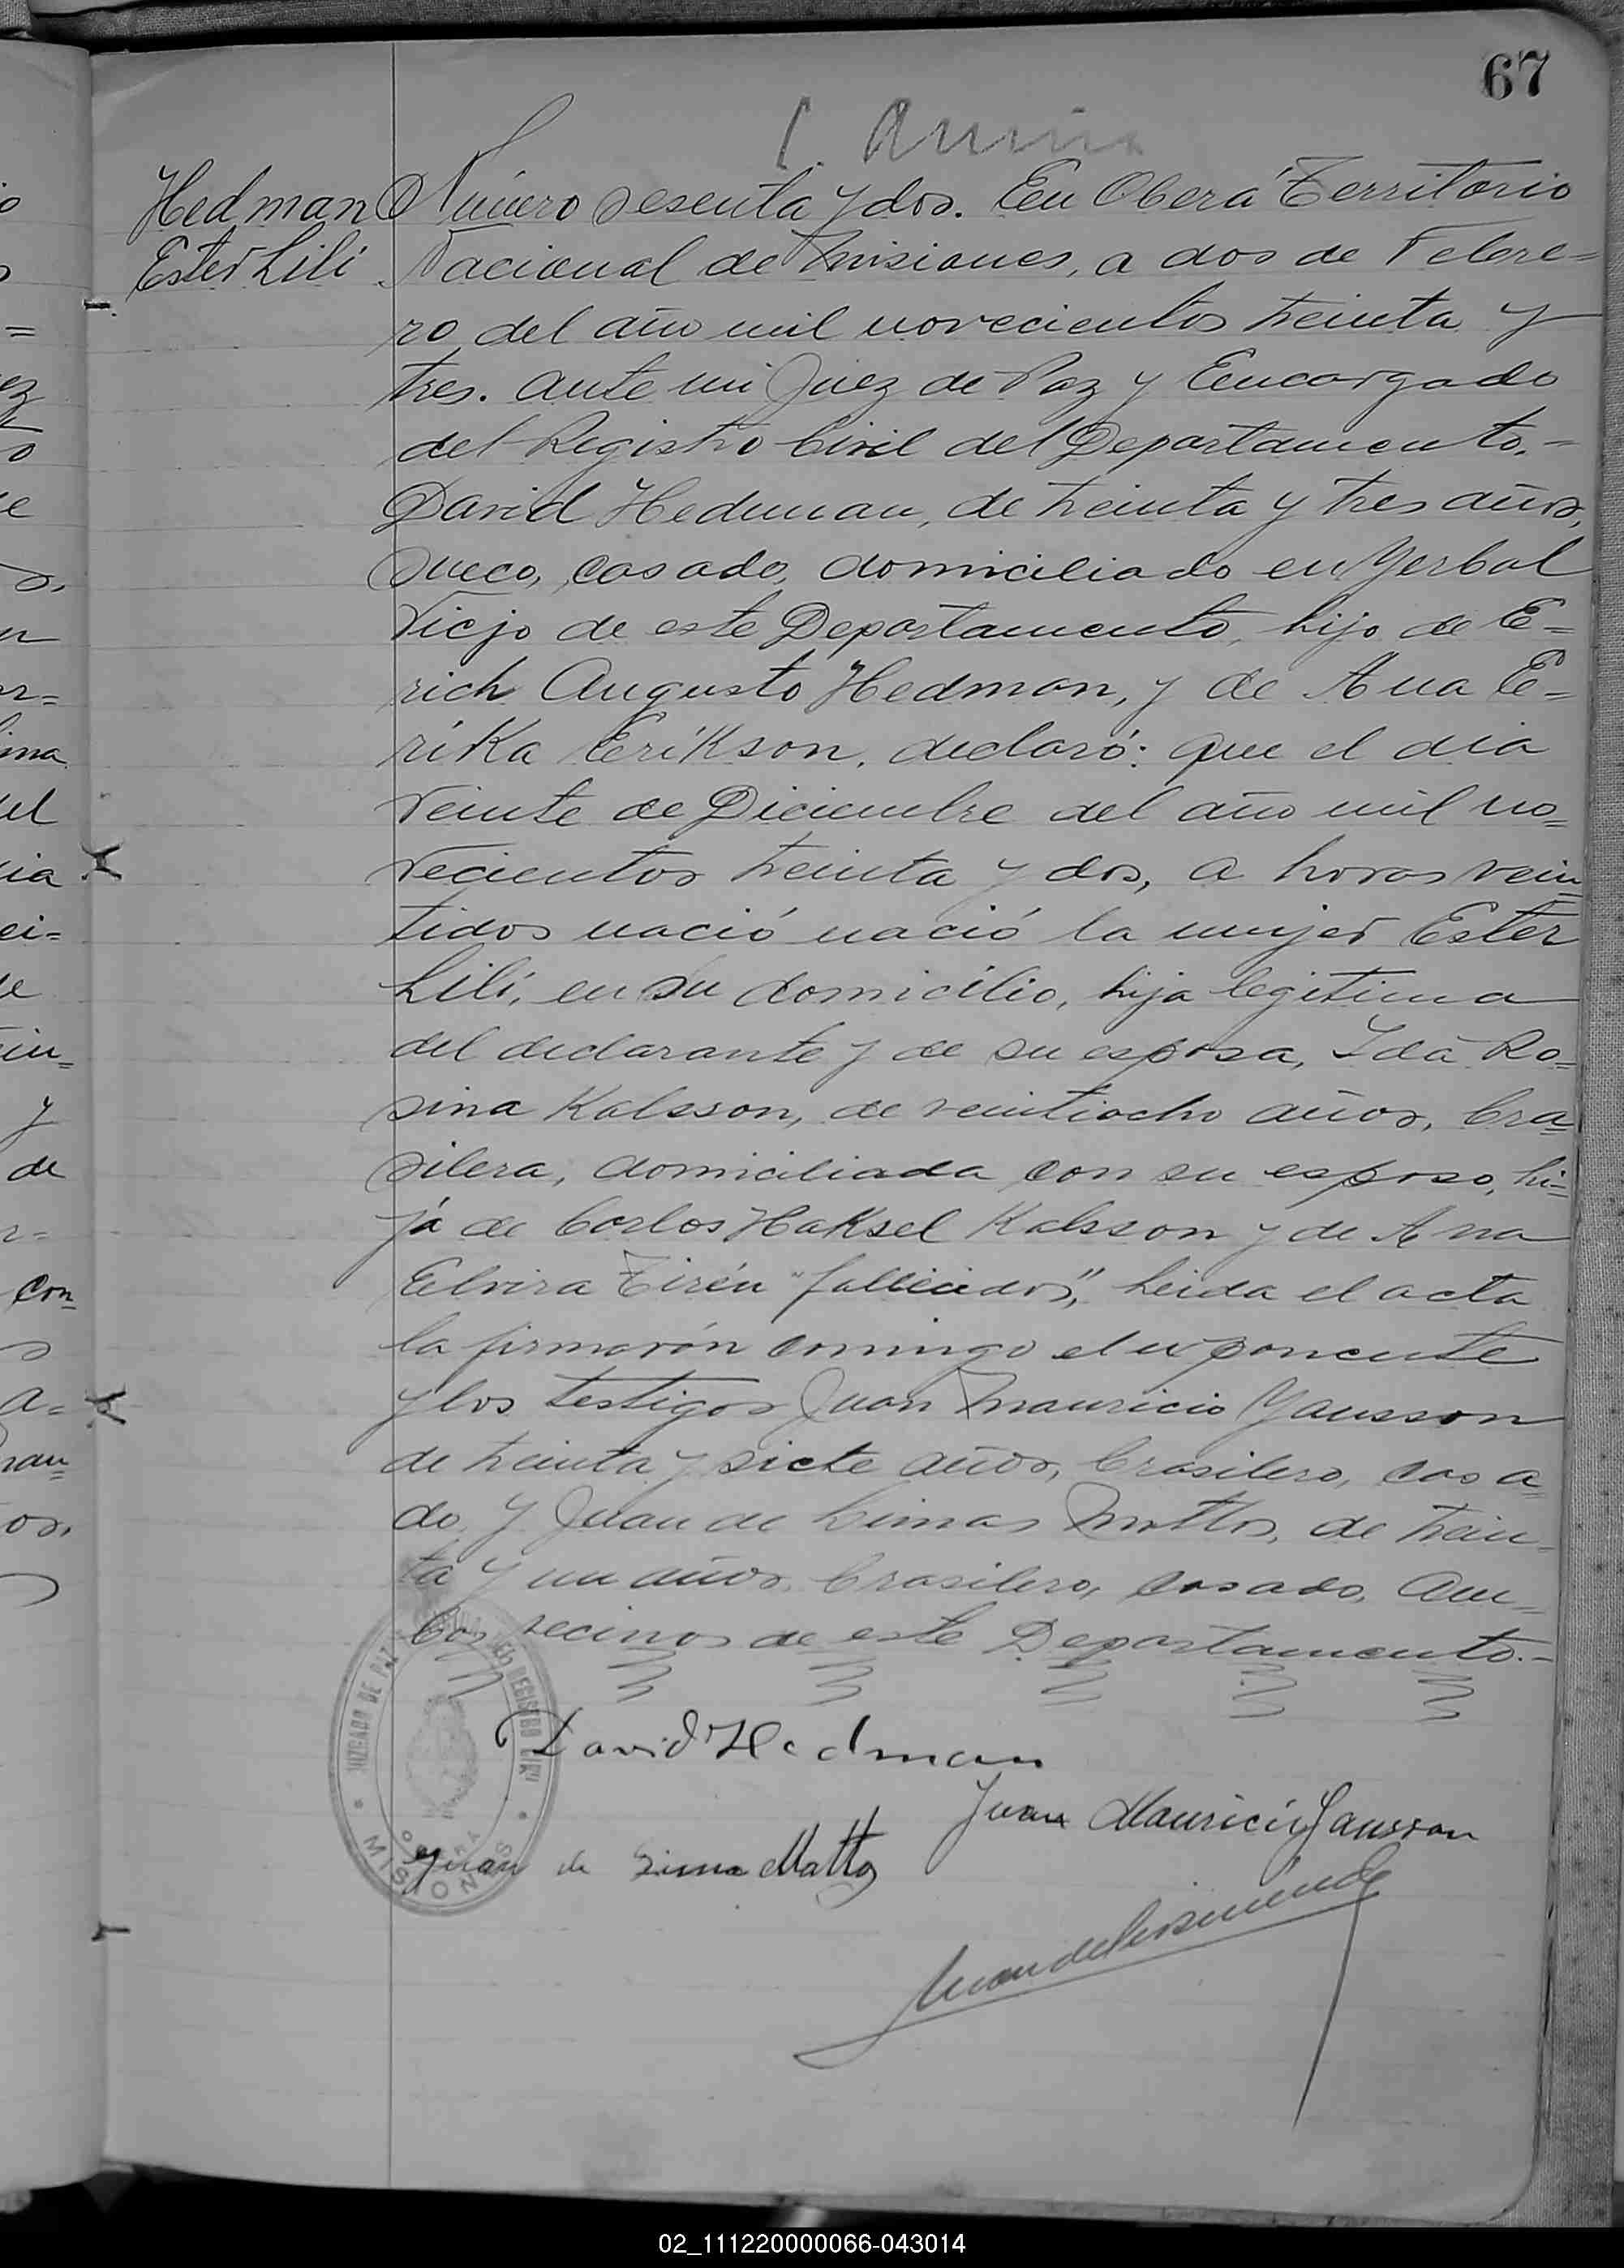 67
Hedman
Ester Lili
Número sesenta y dos. En Oberá Territorio
Nacional de Misiones, a dos de Febre=
ro del año mil novecientos treinta y
tres. Ante mi Juez de Paz y Encargado
del Registro Civil del Departamento.-
David Hedman, de treinta y tres años,
sueco, casado, domiciliado en Yerbal
Viejo de este Departamento, hijo de E=
rich Augusto Hedman, y de Ana E=
rika Erikson, declaró: que el dia
veinte de Diciembre del año mil no=
vecientos treinta y dos, a horas vein=
tidos nació nació la mujer Ester
Lili, en su domicilio, hija legitima
del declarante y de su esposa, Ida Ro=
sina Kalsson, de veintiocho años, bra=
silera, domiciliada con su esposo, hi=
ja de Carlos Haksel Kalsson y de Ana
Elvira Tirén "fallecidos", Leida el acta
la firmarón conmigo el exponente
y los testigos Juan Mauricio Yansson
de treinta y siete años, brasilero, casa=
do y Juan de Limas Mattos, de trein=
ta y un años, brasilero, casado, Am=
bos vecinos de este Departamento.-
David Hedman
Juan Mauricio Jansson
Juan de Lima Mattos
JUZGADO DE PAZ
REGISTRO CIVIL
OBERA
MISIONES
02_111220000066-043014